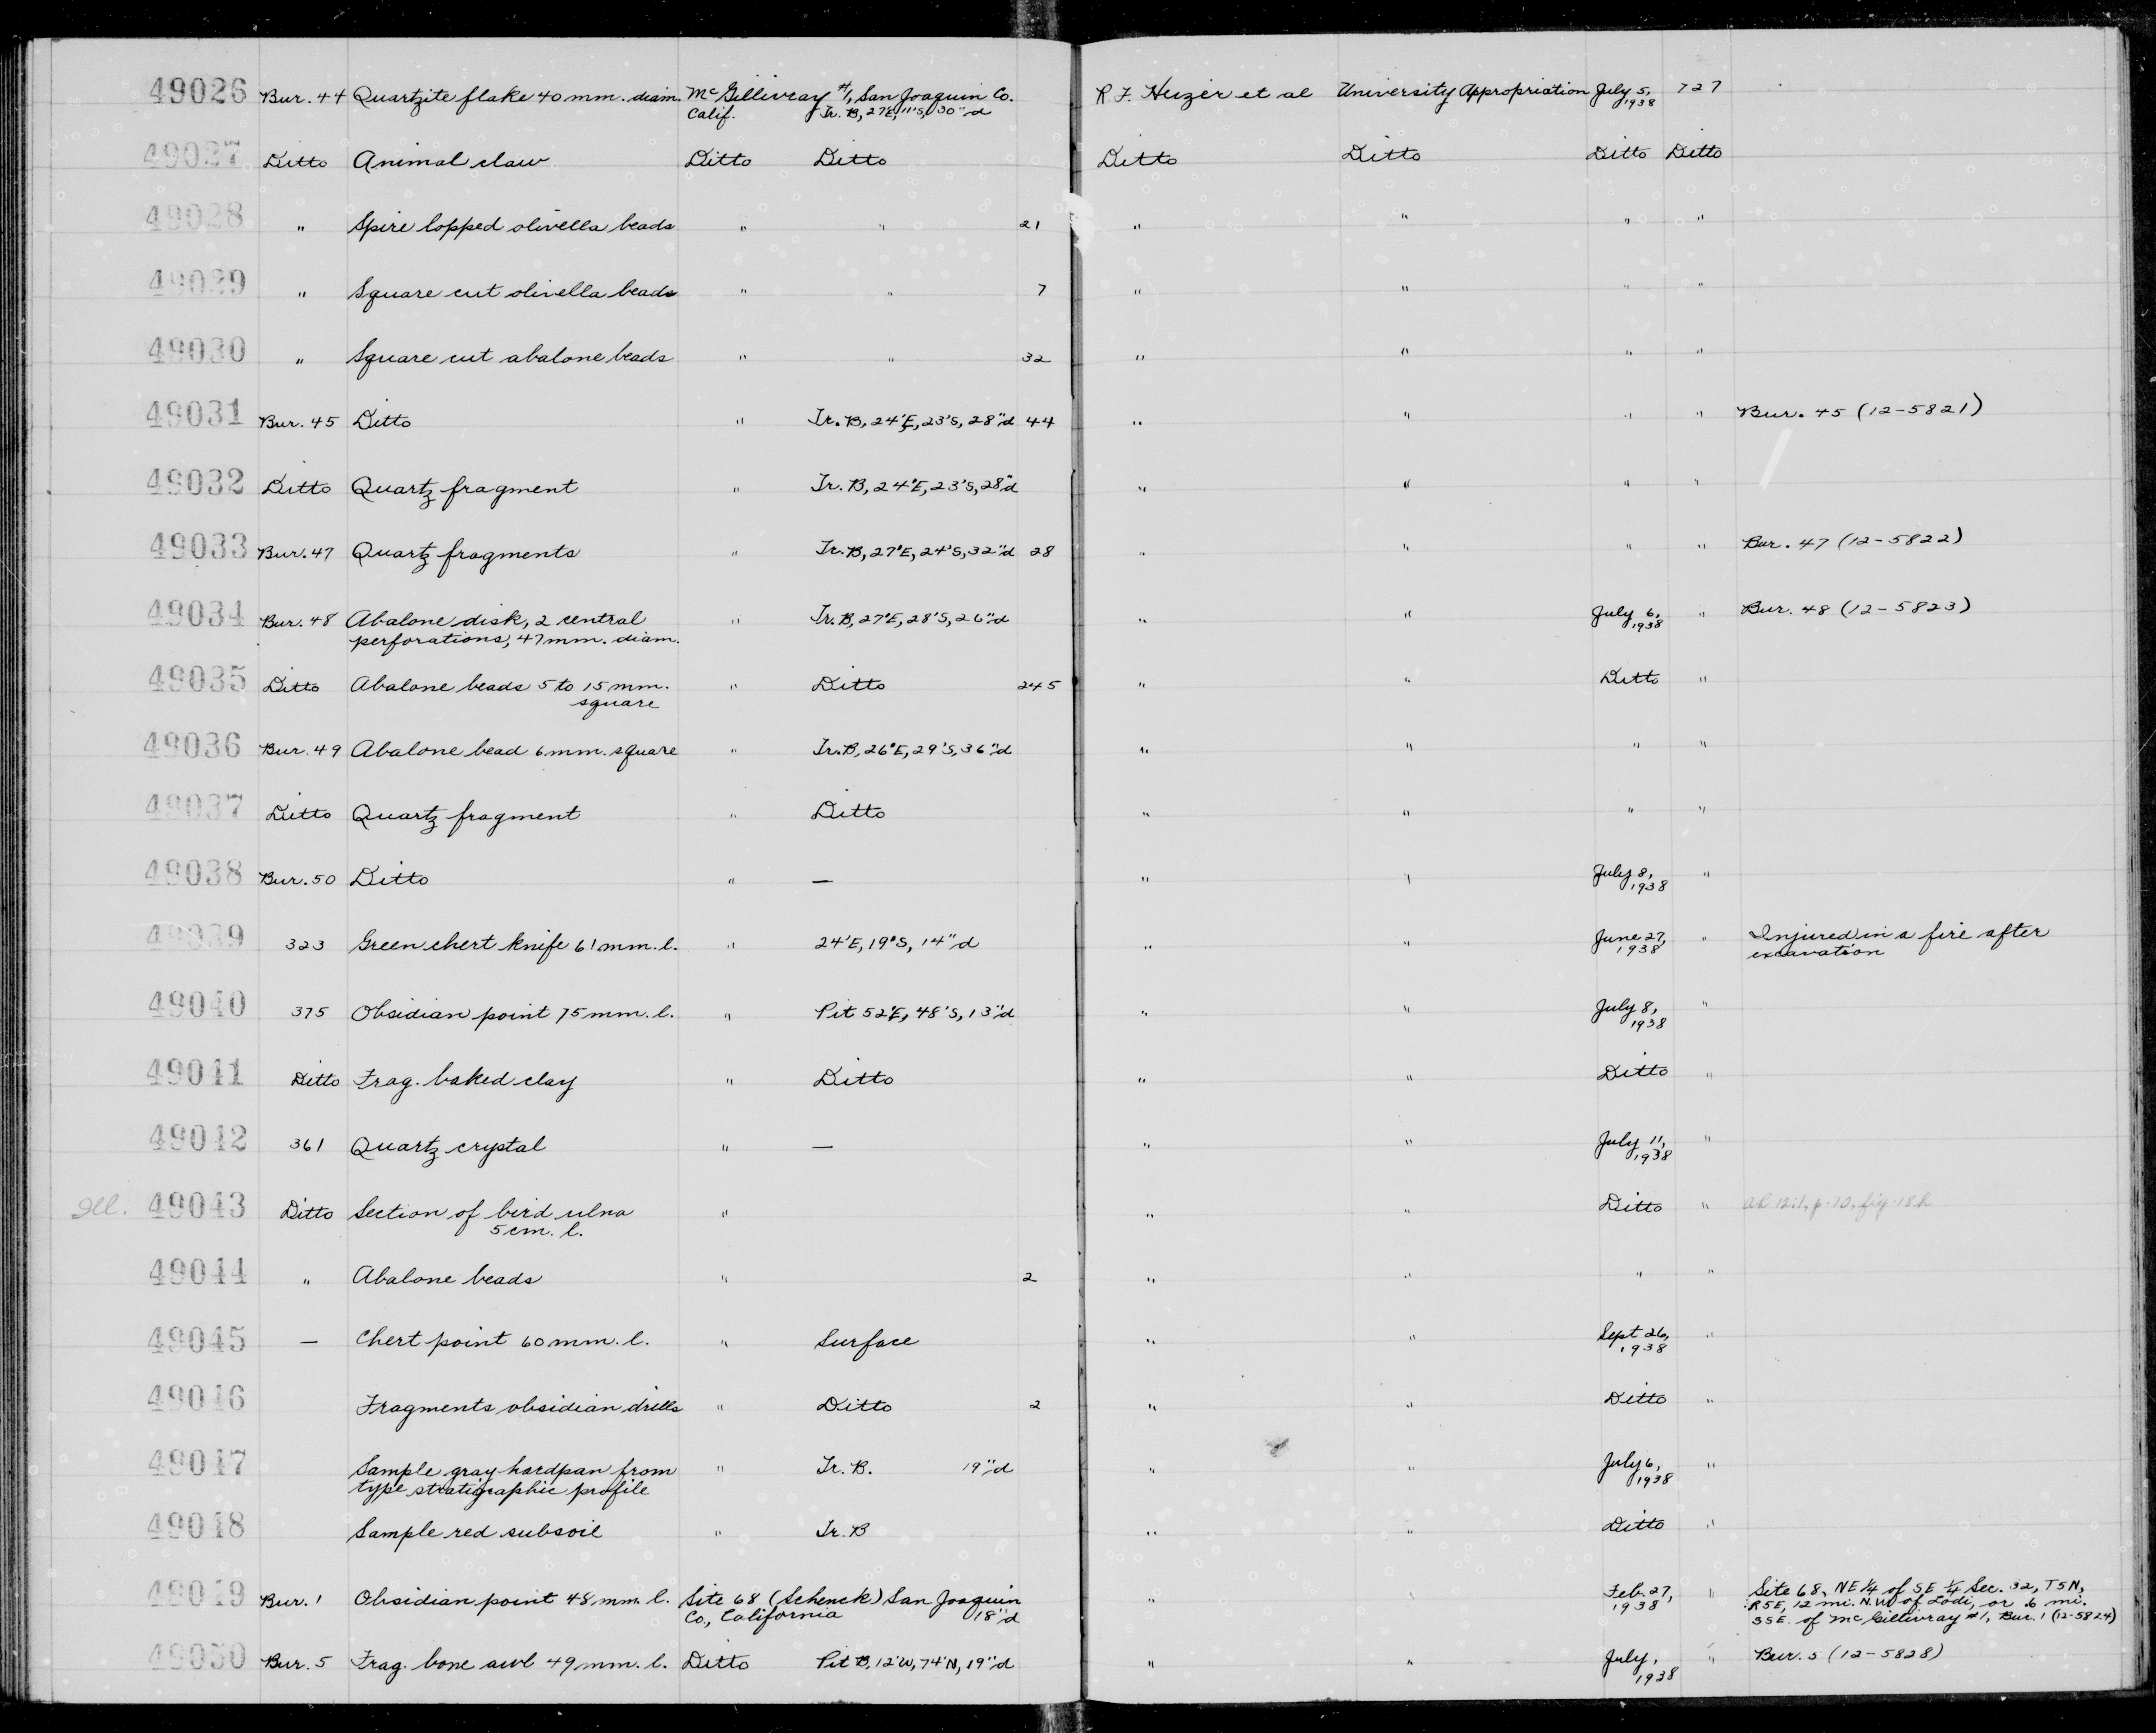 49026 Bur. 44 Quartzite flake 40 mm. diam. McGillivray #1, San Joaquin Co. R F. Heizer et al University Appropriation July 5, 727
Calif. Tr. B, 27'E, 11'S, 30"d 1938
49027 Ditto Animal claw Ditto Ditto Ditto Ditto Ditto Ditto
49028 " Spire lopped olivella beads " " 21 " " " "
49029 " Square cut olivella beads " " 7 " " " "
49030 " Square cut abalone beads " " 32 " " " "
49031 Bur. 45 Ditto " Tr. B, 24'E, 23'S, 28"d 44 " " " " Bur. 45 (12-5821)
49032 Ditto Quartz fragment " Tr. B, 24'E, 23'S, 28"d " " " "
49033 Bur. 47 Quartz fragments " Tr. B, 27'E, 24'S, 32"d 28 " " " " Bur. 47 (12-5822)
49034 Bur. 48 Abalone disk, 2 central " Tr. B, 27'E, 28'S, 26"d " " July 6, " Bur. 48 (12-5823)
perforations, 47 mm. diam. 1938
49035 Ditto Abalone beads 5 to 15 mm. " Ditto 245 " " Ditto "
square
49036 Bur. 49 Abalone bead 6 mm. square " Tr. B, 26'E, 29'S, 36"d " " " "
49037 Ditto Quartz fragment " Ditto " " " "
49038 Bur. 50 Ditto " — " " July 8, "
1938
49039 323 Green chert knife 61 mm. l. " 24'E, 19'S, 14"d " " June 27, " Injured in a fire after
1938 excavation
49040 375 Obsidian point 75 mm. l. " Pit 52'E, 48'S, 13"d " " July 8, "
1938
49041 Ditto Frag. baked clay " Ditto " " Ditto "
49042 361 Quartz crystal " — " " July 11, "
1938
Ill. 49043 Ditto Section of bird ulna " " " Ditto " AR 12:1, p. 70, fig. 18h
5 cm. l.
49044 " Abalone beads " 2 " " " "
49045 — Chert point 60 mm. l. " Surface " " Sept 26, "
1938
49046 Fragments obsidian drills " Ditto 2 " " Ditto "
49047 Sample gray hardpan from " Tr. B. 19"d " " July 6, "
type stratigraphic profile 1938
49048 Sample red subsoil " Tr. B " " Ditto "
49049 Bur. 1 Obsidian point 48 mm. l. Site 68 (Schenck) San Joaquin " " Feb. 27, " Site 68, NE 1/4 of SE 1/4 Sec. 32, T5N,
Co., California 18"d 1938 R5E, 12 mi. N.W. of Lodi, or .6 mi.
SSE. of McGillivray #1, Bur. 1 (12-5824)
49050 Bur. 5 Frag. bone awl 49 mm. l. Ditto Pit B, 12'W, 74'N, 19"d " " July, " Bur. 5 (12-5828)
1938